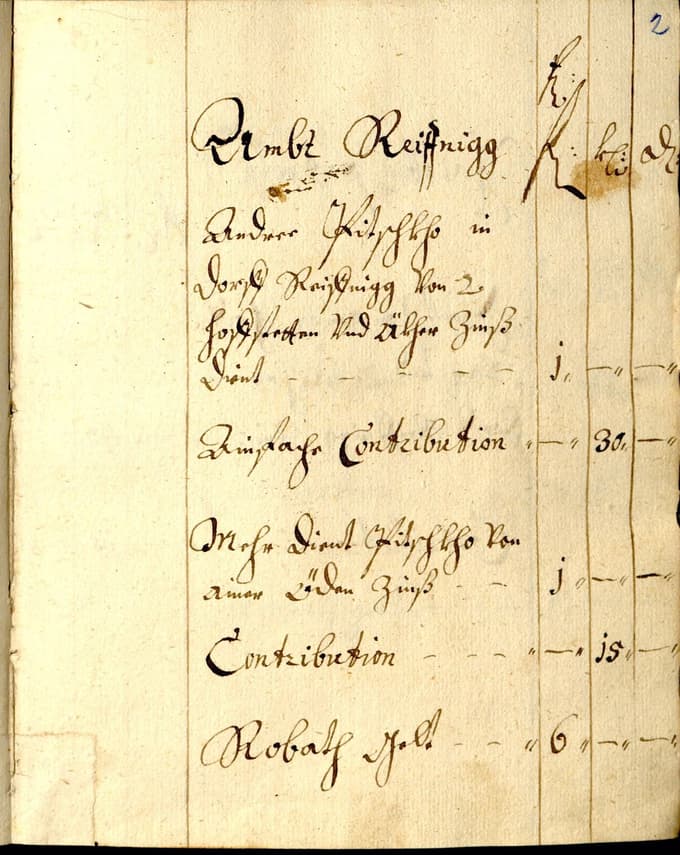 2
Ambt Reiffnigg f: kr: d:
Andree Pitschkho in
Dorff Reiffnigg Von 2
hoffstetten Vnd äkher Zinß
Dient - - - - - 1 „ — „ — „
Ainfache Contribution „ — „ 30 „ — „
Mehr Dient Pitschkho Von
ainer Öden Zinß - - 1 „ — „ — „
Contribution - - - „ — „ 15 „ — „
Robath Gelt - - „ 6 „ — „ — „